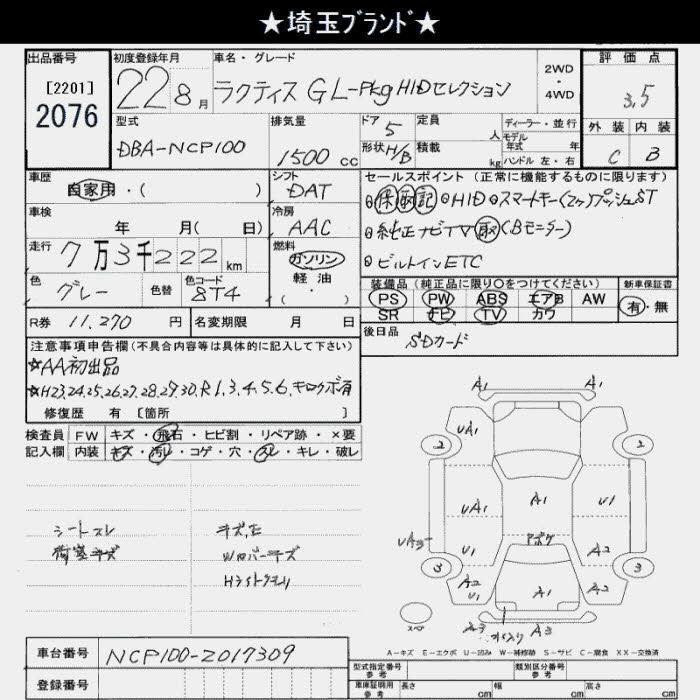 ★埼玉ブランド★
出品番号
[2201]
2076
初度登録年月
22 8月
車名・グレード
ラクティス GL-Pkg HIDセレクション
2WD
・
4WD
評価点
3,5
型式
DBA-NCP100
排気量
1500 cc
ドア 5
形状 H/B
定員 人
積載 kg
ディーラー・並行
モデル
年式 年
ハンドル 左・右
外装 内装
C B
車歴
自家用・( )
シフト
DAT
セールスポイント (正常に機能するものに限ります)
保 取 記 HID スマートキー(2ヶ)プッシュST
純正ナビTV 取(Bモニター)
ビルトインETC
車検
年 月( 日)
冷房
AAC
走行
7万3千222km
燃料
ガソリン
軽油
・
色
グレー
色替
色コード
8T4
装備品 (純正品に限り○をつけてください)
PS PW ABS エアB AW
SR ナビ TV カワ
新車保証書
有・無
R券 11,270 円
名変期限 月 日
後日品
SDカード
注意事項申告欄(不具合内容等は具体的に記入して下さい)
☆AA初出品
☆H23.24.25.26.27.28.29.30.R1.3.4.5.6.キロクボ有
修復歴 有 [箇所 ]
検査員
記入欄
FW キズ・飛石・ヒビ割・リペア跡・×要
内装 キズ・汚レ・コゲ・穴・スレ・キレ・破レ
シートスレ
荷室キズ
キズ,E
Wロバーキズ
A1 A1
UA1
2 2
UA1 A1 U1
UA3
U1 アポケ A2
3 3
A2
U1 A1 A2
スペ
A3 A3
A-キズ E-エクボ U-凹み W-補修跡 S-サビ C-腐食 XX-交換済
車台番号
NCP100-2017309
登録番号
型式指定番号
参考
類別区分番号
参考
車庫証明用
参考
長さ cm 幅 cm 高さ cm